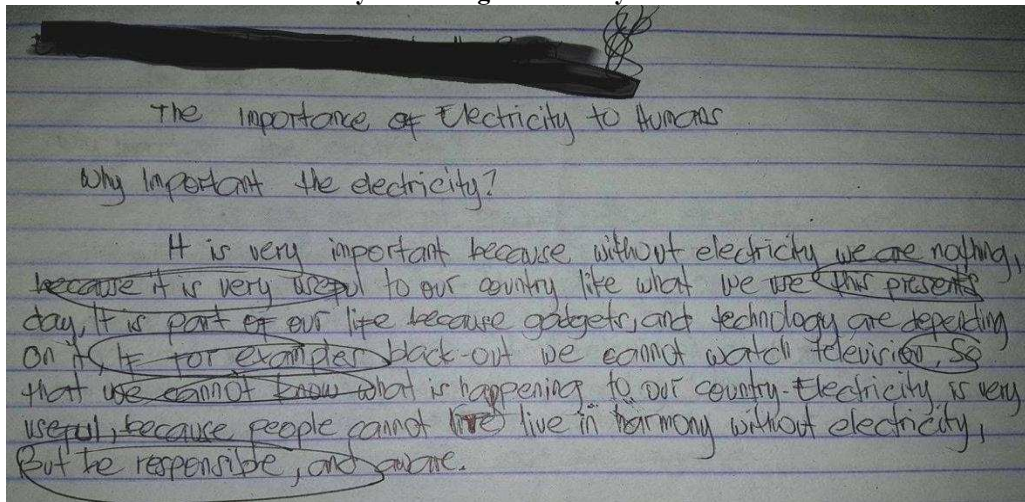 The Importance of Electricity to Humans
Why Important the electricity?
It is very important because without electricity we are nothing,
because it is very useful to our country like what we use this presents
day, It is part of our life because gadgets, and technology are depending
on it, If for example black-out we cannot watch television, So
that we cannot know what is happening to our country. Electricity is very
useful, because people cannot live live in harmony without electricity,
But be responsible, and aware.